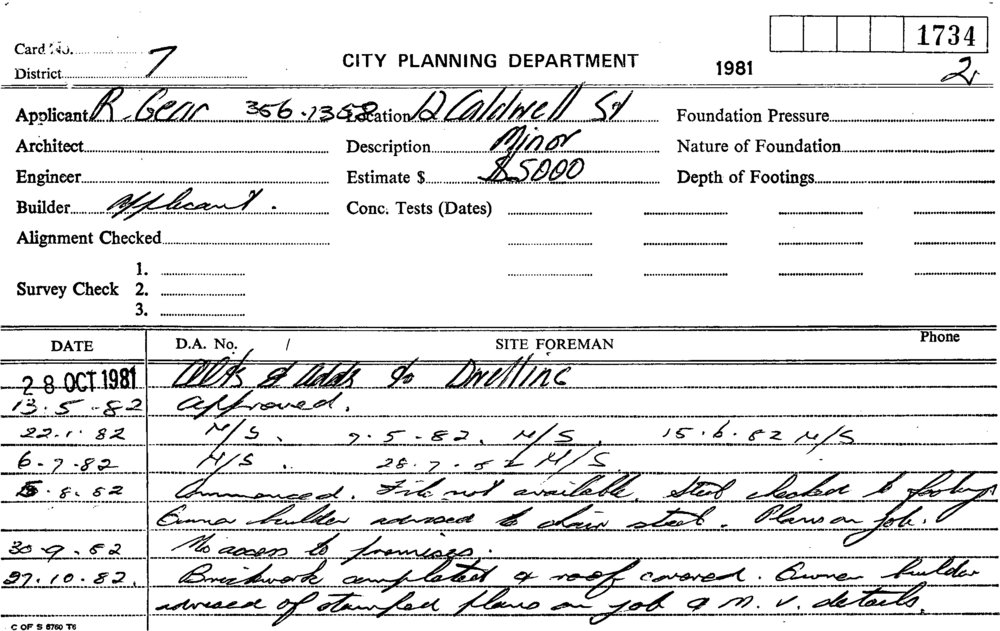 1734
Card No.
7
CITY PLANNING DEPARTMENT
1981
2
District
Applicant R. Gear 356.1352 Location 12 Caldwell St Foundation Pressure
Architect Description Minor Nature of Foundation
Engineer Estimate $ $5000 Depth of Footings
Builder applicant. Conc. Tests (Dates)
Alignment Checked
1.
Survey Check 2.
3.
DATE D.A. No. / SITE FOREMAN Phone
28 OCT 1981 Alts & Adds to Dwelling
13.5.82 Approved.
22.1.82 N/S. 7.5.82. N/S. 15.6.82 N/S
6.7.82 N/S. 28.7.82 N/S.
5.8.82 Commenced. File not available. Steel checked to footings
Owner builder advised to chair steel. Plans on job.
30.9.82 No access to premises.
27.10.82. Brickwork completed & roof covered. Owner builder
advised of stamped plans on job & M.V. details.
C OF S 6760 T6